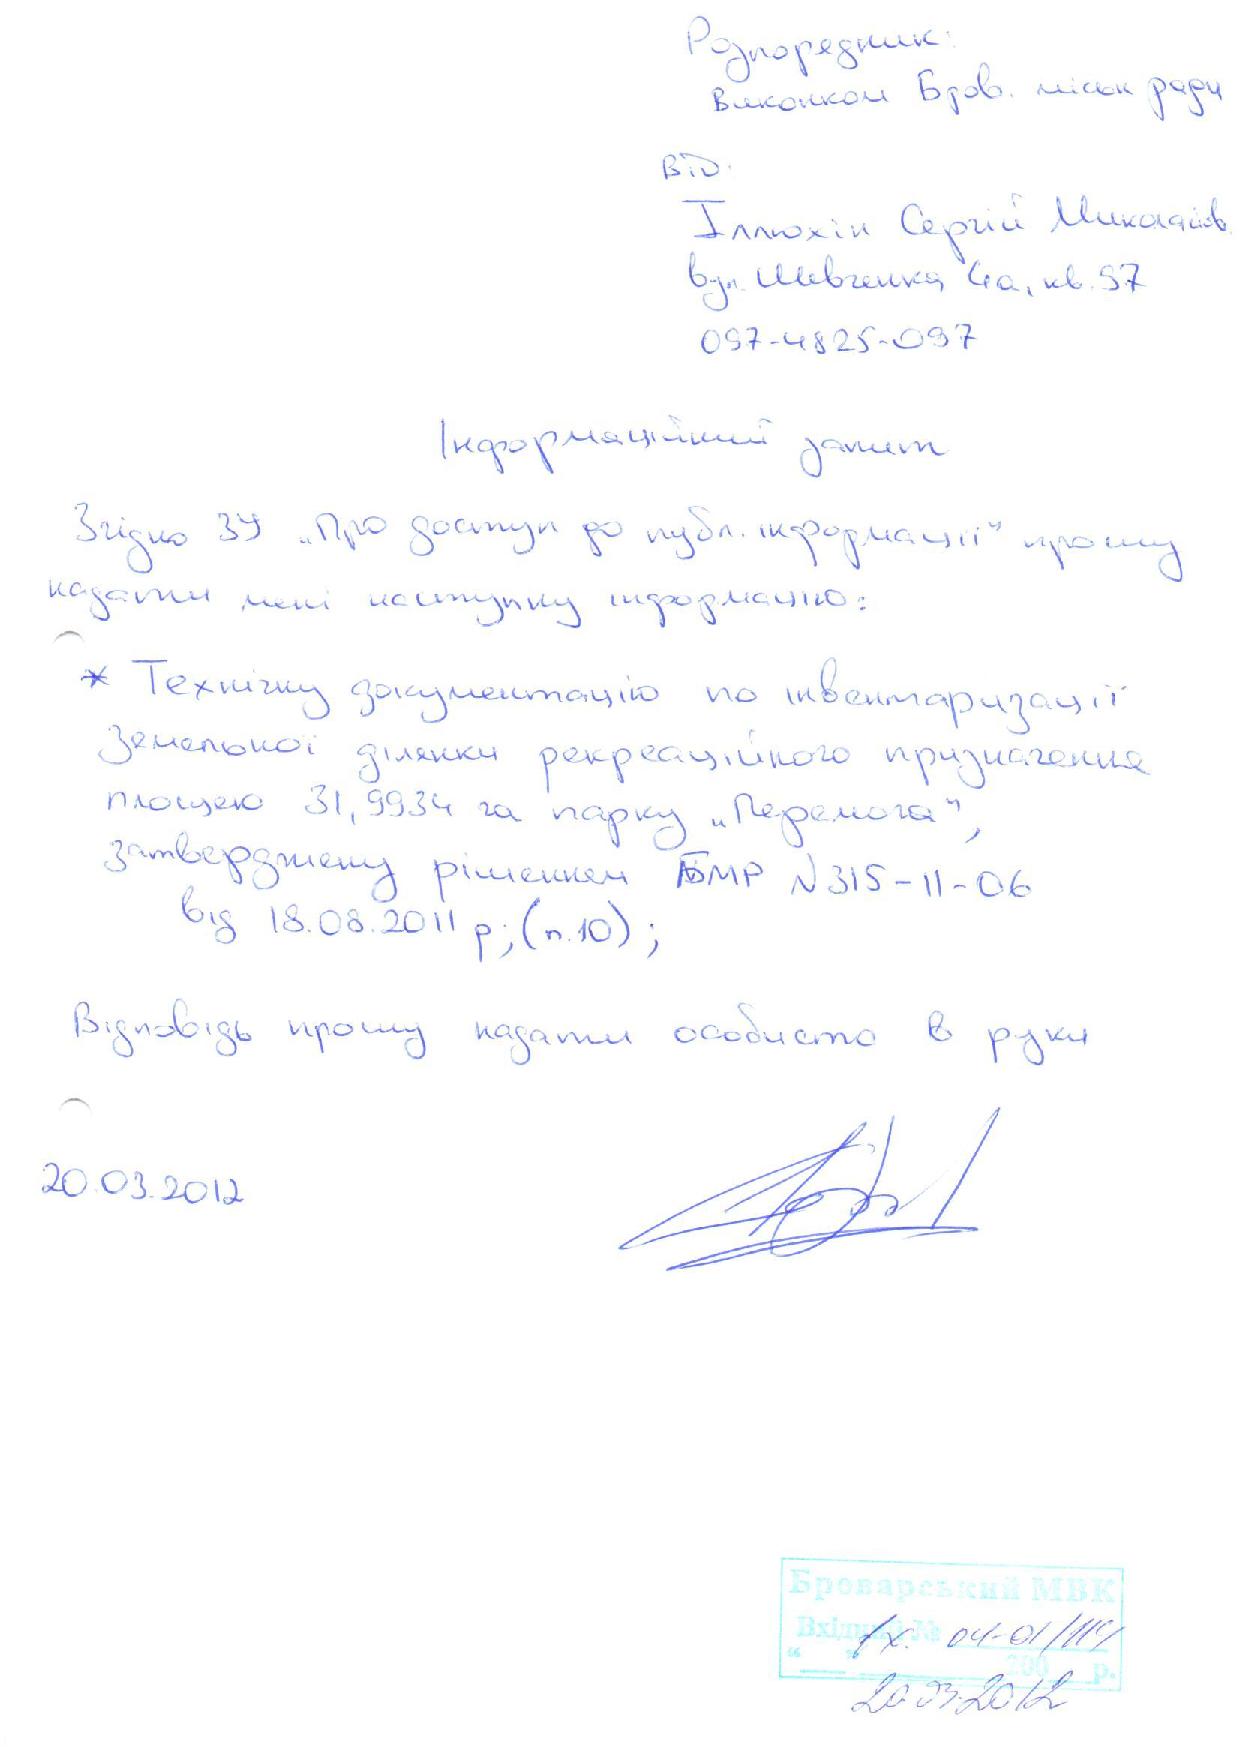 Розпорядник:
Виконком Бров. міськ ради
Від:
Іллюхін Сергій Миколайов.
вул. Шевченка 4а, кв. 97
097-4825-097
Інформаційний запит
Згідно ЗУ „Про доступ до публ. інформації" прошу
надати мені наступну інформацію:
* Технічну документацію по інвентаризації
земельної ділянки рекреаційного призначення
площею 31,9934 га парку „Перемога",
затверджену рішенням БМР N 315-11-06
від 18.08.2011 р; (п.10);
Відповідь прошу надати особисто в руки
20.03.2012
Броварський МВК
Вхідний № вх. 04-01/
"___" ________ 200__ р.
20.03.2012